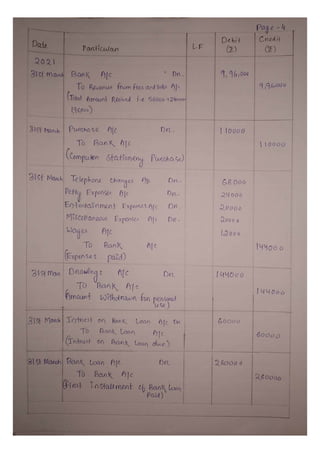 Page - 4
Date Particulars L.F Debit (₹) Credit (₹)
2021
31st March Bank A/c Dr. 9,96,000
To Revenue from Fees and Subs A/c 9,96,000
31st March Purchase A/c Dr. 110000
To Bank A/c 110000
(Computer Stationery Purchase)
31st March Telephone Charges A/c Dr. 68000
Petty Expenses A/c Dr. 24000
Entertainment Expenses A/c Dr.
Miscellaneous Expenses A/c Dr.
Wages A/c 12000
To Bank A/c 144000
(Expenses paid)
31st Mar Drawings A/c Dr. 144000
To Bank A/c 144000
(Amount Withdrawn for personal
use)
31st March Interest on Bank Loan A/c Dr. 60000
To Bank Loan A/c 60000
(Interest on Bank Loan due)
31st March Bank Loan A/c Dr. 260000
To Bank A/c 260000
(First Installment of Bank Loan
Paid)